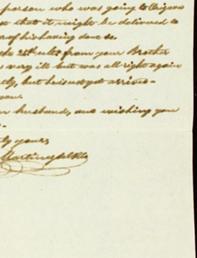 person who was going to
so that it might be delivered to
of his having done so.
the 25th ulto from your Brother
very ill but was all right again
but he is not yet arrived -
your
husband, and wishing you
yours,